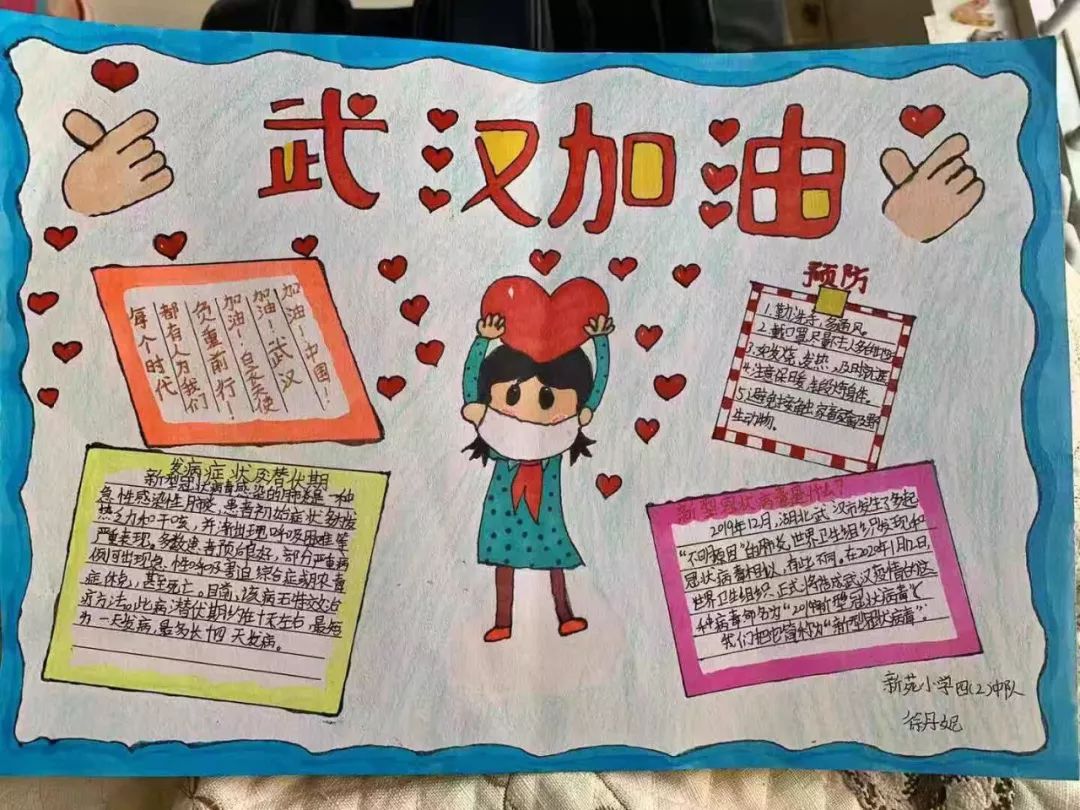 武汉加油
每个时代
都有人为我们
负重前行!
加油!白衣天使
加油!武汉
加油!中国!
预防
1.勤洗手,多通风。
2.戴口罩,尽量不去人多的地方
3.发烧,发热,及时就医
4.注意保暖,
5.避免接触家禽家畜及野
生动物。
发病症状及替伏期
新型冠状病毒感染的肺炎是一种
急性感染性肺,患者初始症状多为发
热乏力和干咳,并渐出现呼吸困难等
严重表现。多数患者预后良好,部分严重病
例可出现急性呼吸窘迫综合症或脓毒
症休克,甚至死亡。目前,该病无特效治
疗方法。此病潜伏期约十天左右,最短
为一天发病,最多长十四天发病。
新型冠状病毒是什么?
2019年12月,湖北武汉市发生了多起
“不明原因”的肺炎,世界卫生组织发现和
冠状病毒相似,有些不同。在2020年1月12日,
世界卫生组织正式将造成武汉疫情的这
种病毒命名为“2019新型冠状病毒”,
我们把它简称为“新型冠状病毒”。
新苑小学四(2)中队
徐丹妮